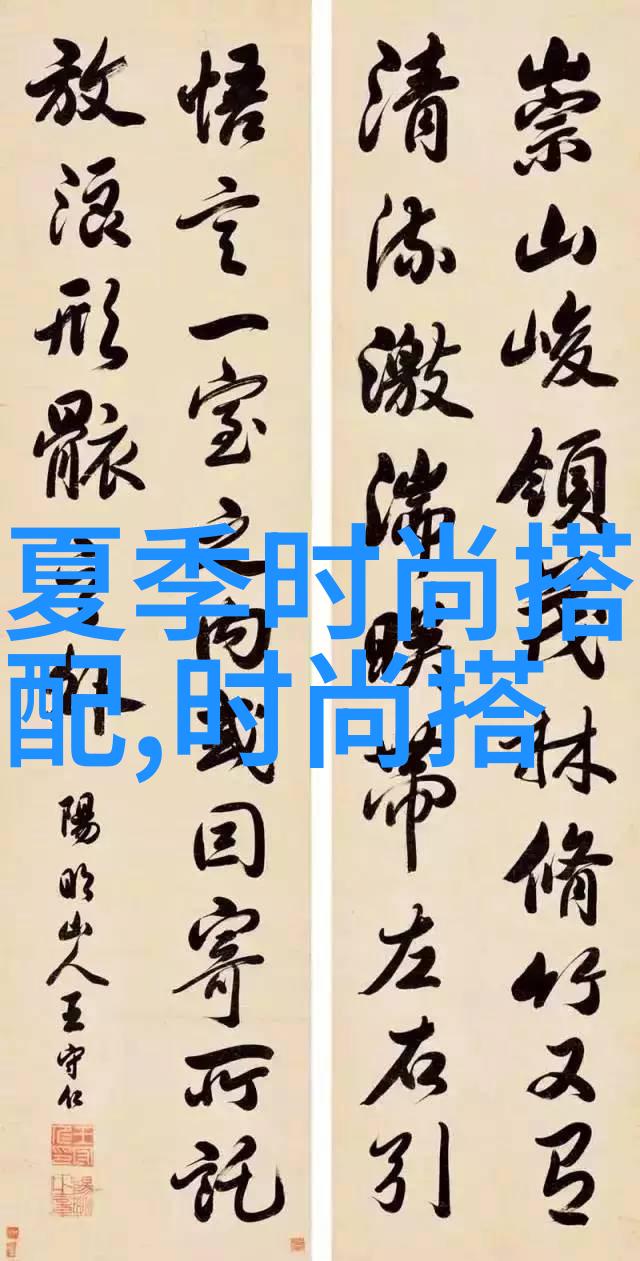 崇山峻領茂林脩竹又有
清流激湍暎帶左右引
悟言一室之内或因寄所託
放浪形骸之外
陽明山人王守仁
夏季时尚搭
配,时尚搭